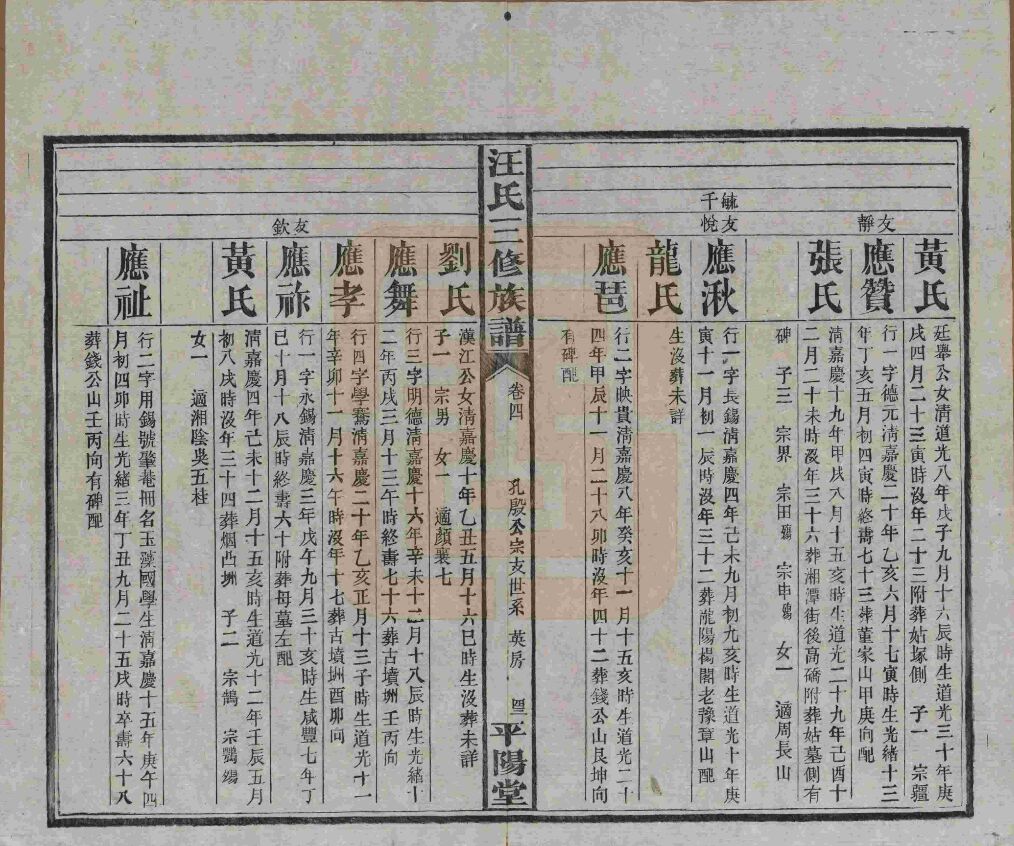 黃氏
廷舉公女淸道光八年戊子九月十六辰時生道光三十年庚
戌四月二十三寅時沒年二十三附葬姑塚側　子一　宗疆
友靜
應贊
行一字德元淸嘉慶二十年乙亥六月十七寅時生光緒十三
年丁亥五月初四寅時終壽七十三葬董家山甲庚向配
張氏
淸嘉慶十九年甲戌八月十五亥時生道光二十九年己酉十
二月二十未時沒年三十六葬湘潭街後高礄附葬姑墓側有
碑　子三　宗界　宗田殤　宗申殤　女一　適周長山
毓千
友悅
應湫
行一字長錫淸嘉慶四年己未九月初九亥時生道光十年庚
寅十一月初一辰時沒年三十二葬龍陽楊閣老豫章山配
龍氏
生沒葬未詳
應琶
行二字映貴淸嘉慶八年癸亥十一月十五亥時生道光二十
四年甲辰十一月二十八卯時沒年四十二葬錢公山艮坤向
有碑配
汪氏三修族譜
卷四
孔殷公宗支世系
英房
平陽堂
劉氏
漢江公女淸嘉慶十年乙丑五月十六巳時生沒葬未詳
子一　宗男　女一　適顏襄七
應舞
行三字明德淸嘉慶十六年辛未十二月十八辰時生光緒十
二年丙戌三月十三午時終壽七十六葬古墳坰壬丙向
應孝
行四字學騫淸嘉慶二十年乙亥正月十三子時生道光十一
年辛卯十一月十六午時沒年十七葬古墳坰酉卯向
友欽
應祢
行一字永錫淸嘉慶三年戊午九月三十亥時生咸豐七年丁
巳十月十八辰時終壽六十附葬母墓左配
黃氏
淸嘉慶四年己未十二月十五亥時生道光十二年壬辰五月
初八戌時沒年三十四葬烟凸坰　子二　宗鵠　宗鸚殤
女一　適湘陰吳五桂
應祉
行二字用錫號肇菴冊名玉藻國學生淸嘉慶十五年庚午四
月初四卯時生光緒三年丁丑九月二十五戌時卒壽六十八
葬錢公山壬丙向有碑配